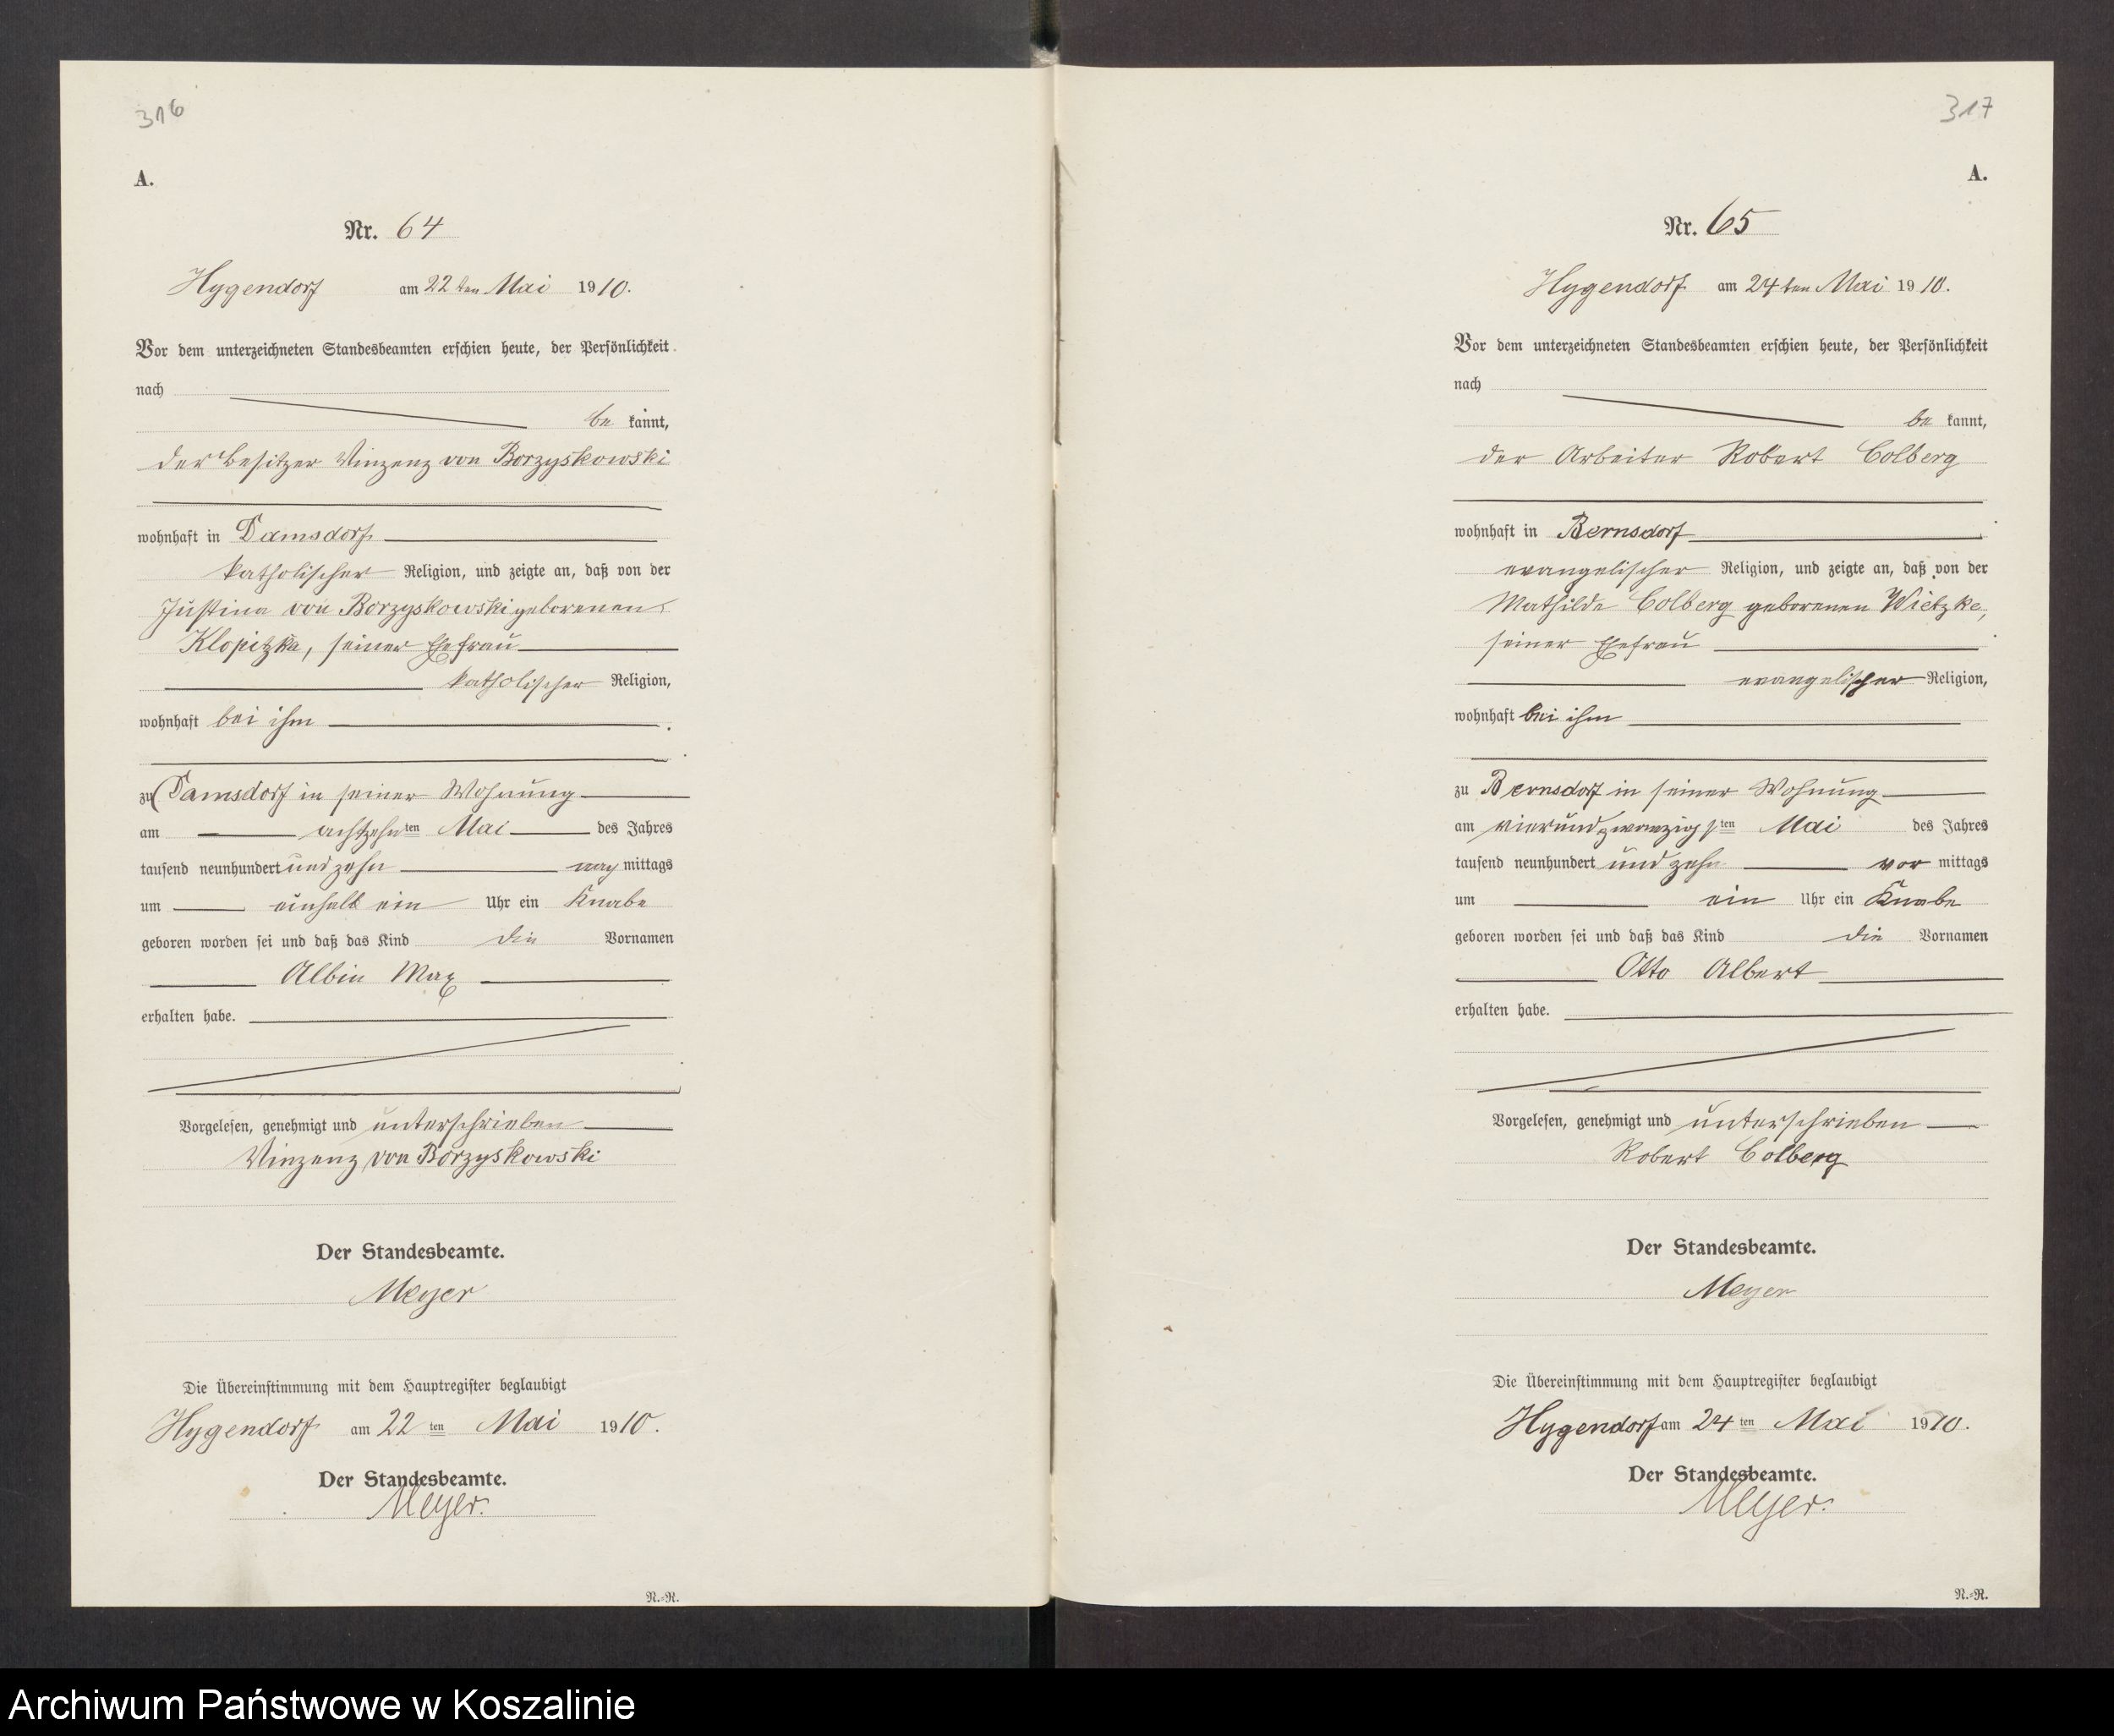 316
A.
Nr. 64
Hygendorf am 22ten Mai 1910.
Vor dem unterzeichneten Standesbeamten erschien heute, der Persönlichkeit
nach
be kannt,
der Besitzer Vinzenz von Borzyskowski
wohnhaft in Damsdorf
katholischer Religion, und zeigte an, daß von der
Justina von Borzyskowski geborenen
Klopitzka, seiner Ehefrau
katholischer Religion,
wohnhaft bei ihm
zu Damsdorf in seiner Wohnung
am achtzehnten Mai des Jahres
tausend neunhundert und zehn nach mittags
um einhalb ein Uhr ein Knabe
geboren worden sei und daß das Kind die Vornamen
Albin Max
erhalten habe.
Vorgelesen, genehmigt und unterschrieben
Vinzenz von Borzyskowski
Der Standesbeamte.
Meyer
Die Übereinstimmung mit dem Hauptregister beglaubigt
Hygendorf am 22 ten Mai 1910.
Der Standesbeamte.
Meyer.
N.=N.
317
A.
Nr. 65
Hygendorf am 24ten Mai 1910.
Vor dem unterzeichneten Standesbeamten erschien heute, der Persönlichkeit
nach
be kannt,
der Arbeiter Robert Colberg
wohnhaft in Bernsdorf
evangelischer Religion, und zeigte an, daß von der
Mathilde Colberg geborenen Wietzke,
seiner Ehefrau
evangelischer Religion,
wohnhaft bei ihm
zu Bernsdorf in seiner Wohnung
am vierundzwanzigsten Mai des Jahres
tausend neunhundert und zehn vor mittags
um ein Uhr ein Knabe
geboren worden sei und daß das Kind die Vornamen
Otto Albert
erhalten habe.
Vorgelesen, genehmigt und unterschrieben
Robert Colberg
Der Standesbeamte.
Meyer
Die Übereinstimmung mit dem Hauptregister beglaubigt
Hygendorf am 24 ten Mai 1910.
Der Standesbeamte.
Meyer.
N.=N.
Archiwum Państwowe w Koszalinie